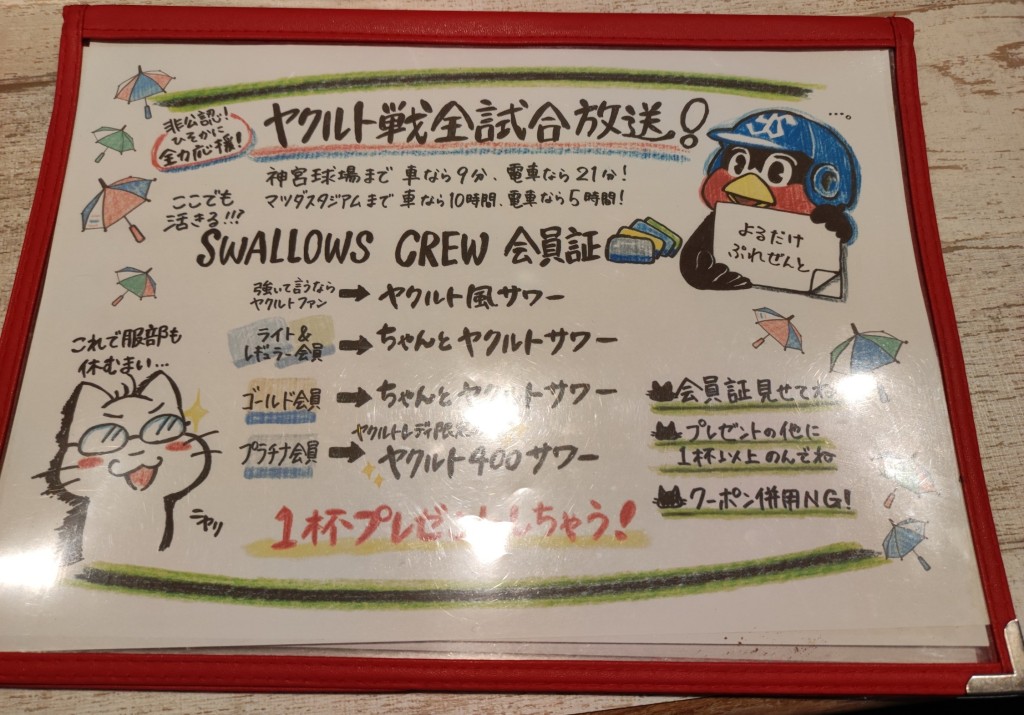 非公認!
ひそかに
全力応援!
ヤクルト戦全試合放送!
神宮球場まで 車なら9分、電車なら21分!
マツダスタジアムまで 車なら10時間、電車なら5時間!
...。
よるだけ
ぷれぜんと
ここでも
活きる!!!?
SWALLOWS CREW 会員証
強いて言うなら
ヤクルトファン
➡ ヤクルト風サワー
ライト&
レギュラー会員
➡ ちゃんとヤクルトサワー
ゴールド会員 ➡ ちゃんとヤクルトサワー
プラチナ会員 ➡
ヤクルトレディ限定
ヤクルト400サワー
1杯プレゼントしちゃう!
これで服部も
休むまい...
ニヤリ
会員証見せてね
プレゼントの他に
1杯以上のんでね
クーポン併用NG!